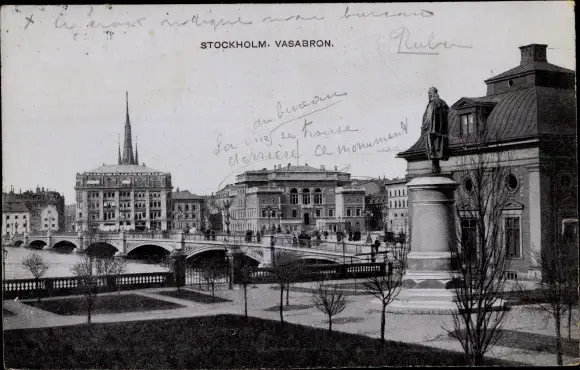 x la croix indique mon bureau
Ruben
STOCKHOLM. VASABRON.
au bureau
se trouve
derrière ce monument